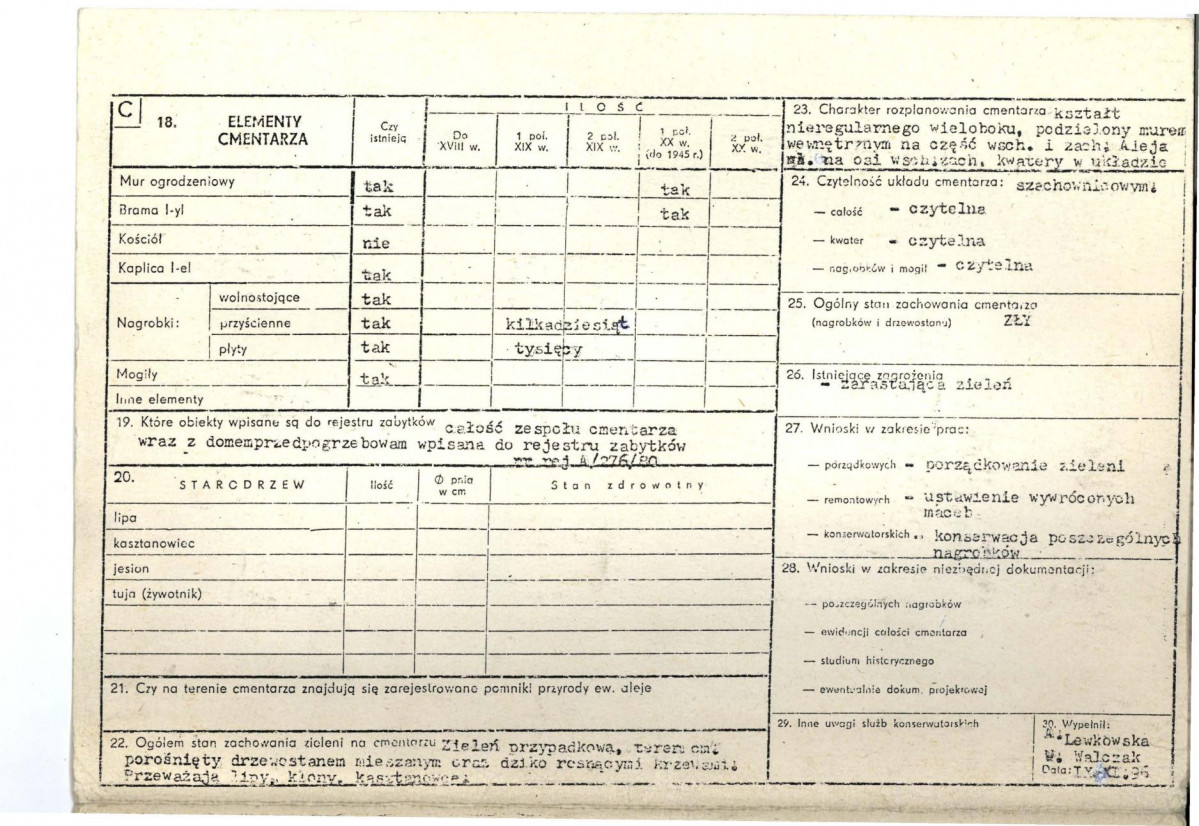 C
18. ELEMENTY CMENTARZA
Czy istnieją
I L O Ś Ć
Do XVIII w.
1 poł. XIX w.
2 poł. XIX w.
1 poł. XX w. (do 1945 r.)
2 poł. XX w.
Mur ogrodzeniowy tak tak
Brama I-yl tak tak
Kościół nie
Kaplica I-el tak
Nagrobki:
wolnostojące tak
przyścienne tak kilkadziesiąt
płyty tak tysięcy
Mogiły tak
Inne elementy
19. Które obiekty wpisane są do rejestru zabytków całość zespołu cmentarza
wraz z domemprzedpogrzebowam wpisana do rejestru zabytków
nr rej A/276/80
20. STARODRZEW Ilość Ø pnia w cm Stan zdrowotny
lipa
kasztanowiec
jesion
tuja (żywotnik)
21. Czy na terenie cmentarza znajdują się zarejestrowane pomniki przyrody ew. aleje
22. Ogółem stan zachowania zieleni na cmentarzu Zieleń przypadkowa, teren cm.
porośnięty drzewostanem mieszanym oraz dziko rosnącymi krzewami.
Przeważają lipy, klony, kasztanowce.
23. Charakter rozplanowania cmentarza kształt
nieregularnego wieloboku, podzielony murem
wewnętrznym na część wsch. i zach. Aleja
na osi wsch.zach. kwatery w układzie
24. Czytelność układu cmentarza: szachownicowym.
— całość - czytelna
— kwater - czytelna
— nagrobków i mogił - czytelna
25. Ogólny stan zachowania cmentarza
(nagrobków i drzewostanu) ZŁY
26. Istniejące zagrożenia
- zarastająca zieleń
27. Wnioski w zakresie prac:
— porządkowych - porządkowanie zieleni
— remontowych - ustawienie wywróconych
maceb
— konserwatorskich . konserwacja poszczególnych
nagrobków
28. Wnioski w zakresie niezbędnej dokumentacji:
— poszczególnych nagrobków
— ewidencji całości cmentarza
— studium historycznego
— ewentualnie dokum. projektowej
29. Inne uwagi służb konserwatorskich
30. Wypełnił:
A. Lewkowska
W. Walczak
Data: IX XI.96